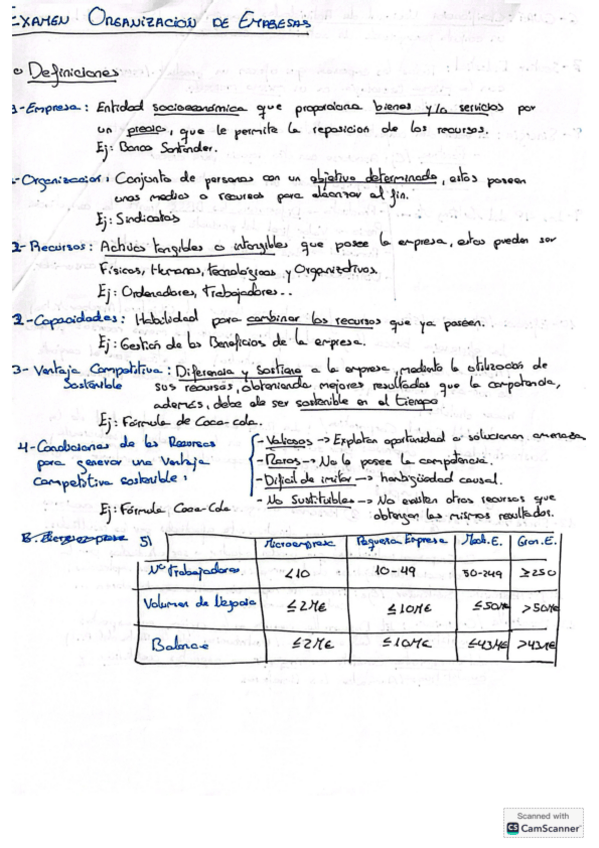 EXAMEN ORGANIZACION DE EMPRESAS
Definiciones
1-Empresa: Entidad socioeconómica que proporciona bienes y/o servicios por
un precio, que le permite la reposicion de los recursos.
Ej: Banco Santander.
-Organizacion: Conjunto de personas con un objetivo determinado, estos poseen
unos medios o recursos para alcanzar al fin.
Ej: Sindicatos
2-Recursos: Activos tangibles o intangibles que posee la empresa, estos pueden ser
Físicos, Humanos, Tecnológicos y Organizativos.
Ej: Ordenadores, Trabajadores..
2-Capacidades: Habilidad para combinar los recursos que ya poseen.
Ej: Gestión de los Beneficios de la empresa.
3-Ventaja Competitiva: Diferencia y Sostiene a la empresa, mediante la utilización de
Sostenible sus recursos, obteniendo mejores resultados que la competencia,
además, debe de ser sostenible en el tiempo
Ej: Fórmula de Coca-cola.
4-Condiciones de los Recursos
para generar una Ventaja
Competitiva sostenible:
-Valiosos -> Explotan oportunidad o solucionen amenaza
-Raros -> No lo posee la competencia.
-Dificil de imitar -> hambigüedad causal.
-No Sustituibles -> No existen otros recursos que
obtengan los mismos resultados.
Ej: Fórmula Coca-Cola
5) Microempresa Pequeña Empresa Med. E. Gran. E.
Nº Trabajadores <10 10-49 50-249 ≥250
Volumen de Negocio ≤2M€ ≤10M€ ≤50M€ >50M€
Balance ≤2M€ ≤10M€ ≤43M€ >43M€
Scanned with
CS CamScanner